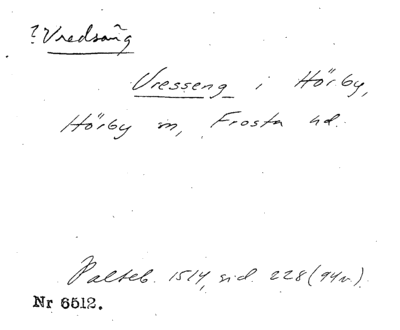 ?Vredsäng
Vresseng i Hörby,
Hörby sn, Frosta hd.
Palteb. 1514, sid. 228 (94v).
Nr 6512.